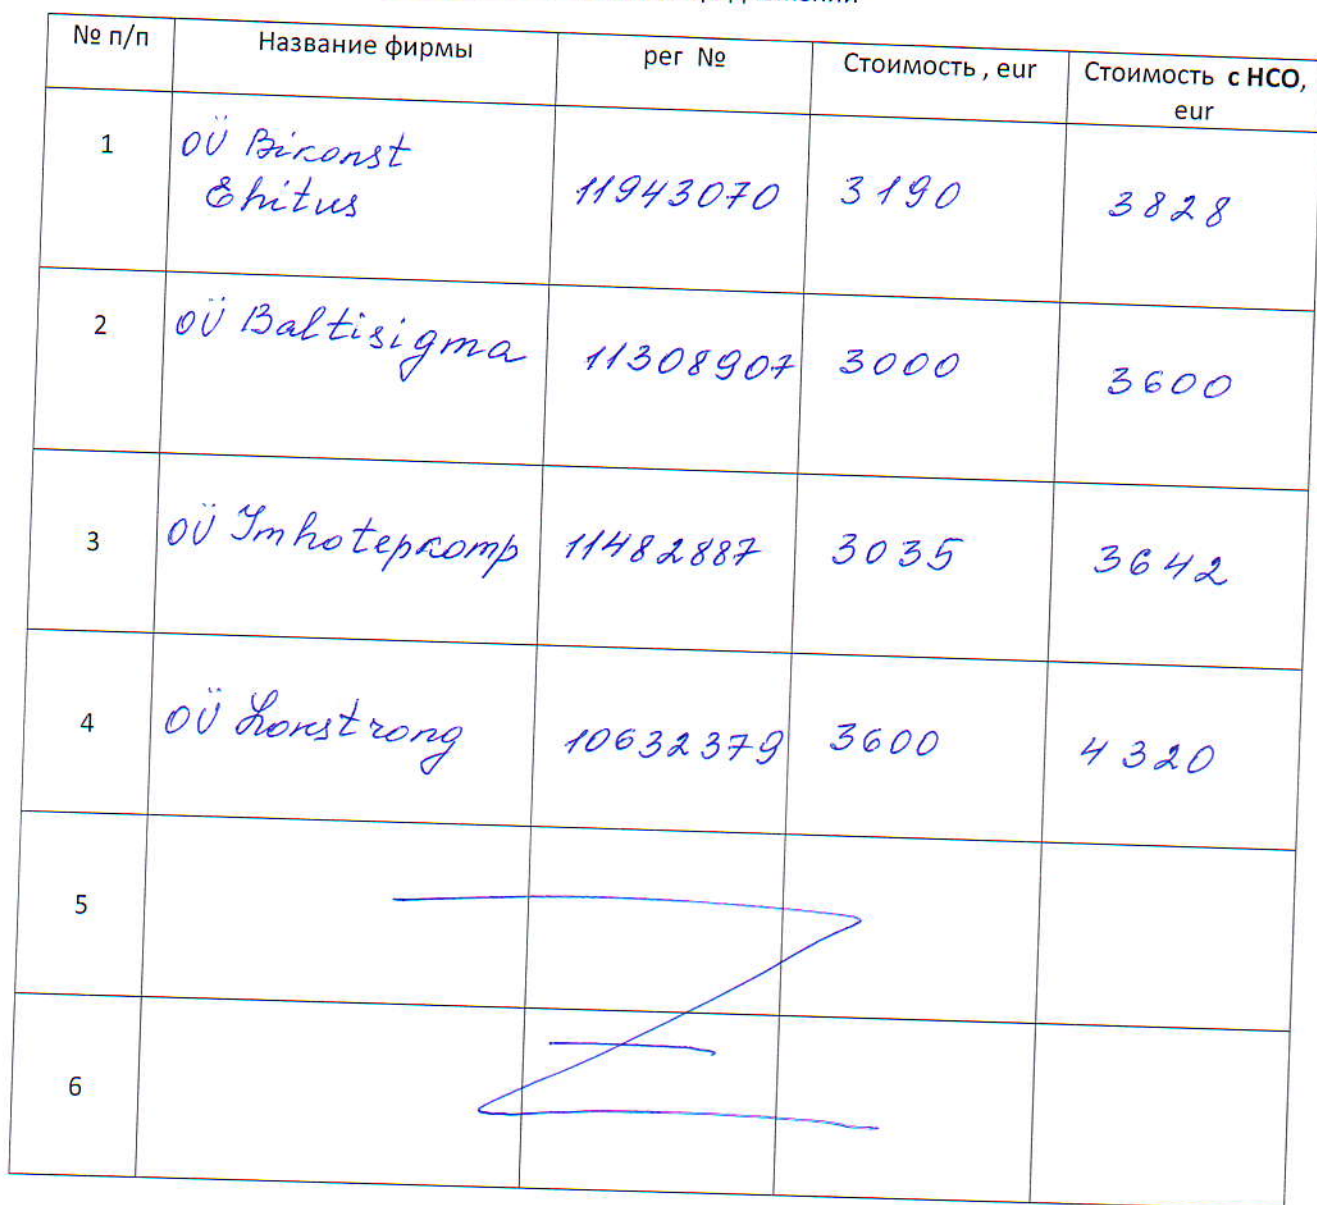 № п/п Название фирмы рег № Стоимость , eur Стоимость с НСО,
eur
1 OÜ Bikonst
Ehitus 11943070 3190 3828
2 OÜ Baltisigma 11308907 3000 3600
3 OÜ Imhotepkomp 11482887 3035 3642
4 OÜ Lonstrong 10632379 3600 4320
5
6